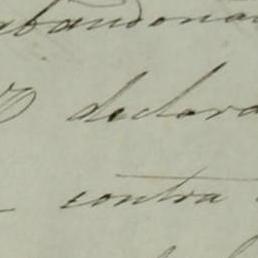 abandona
declara
contra